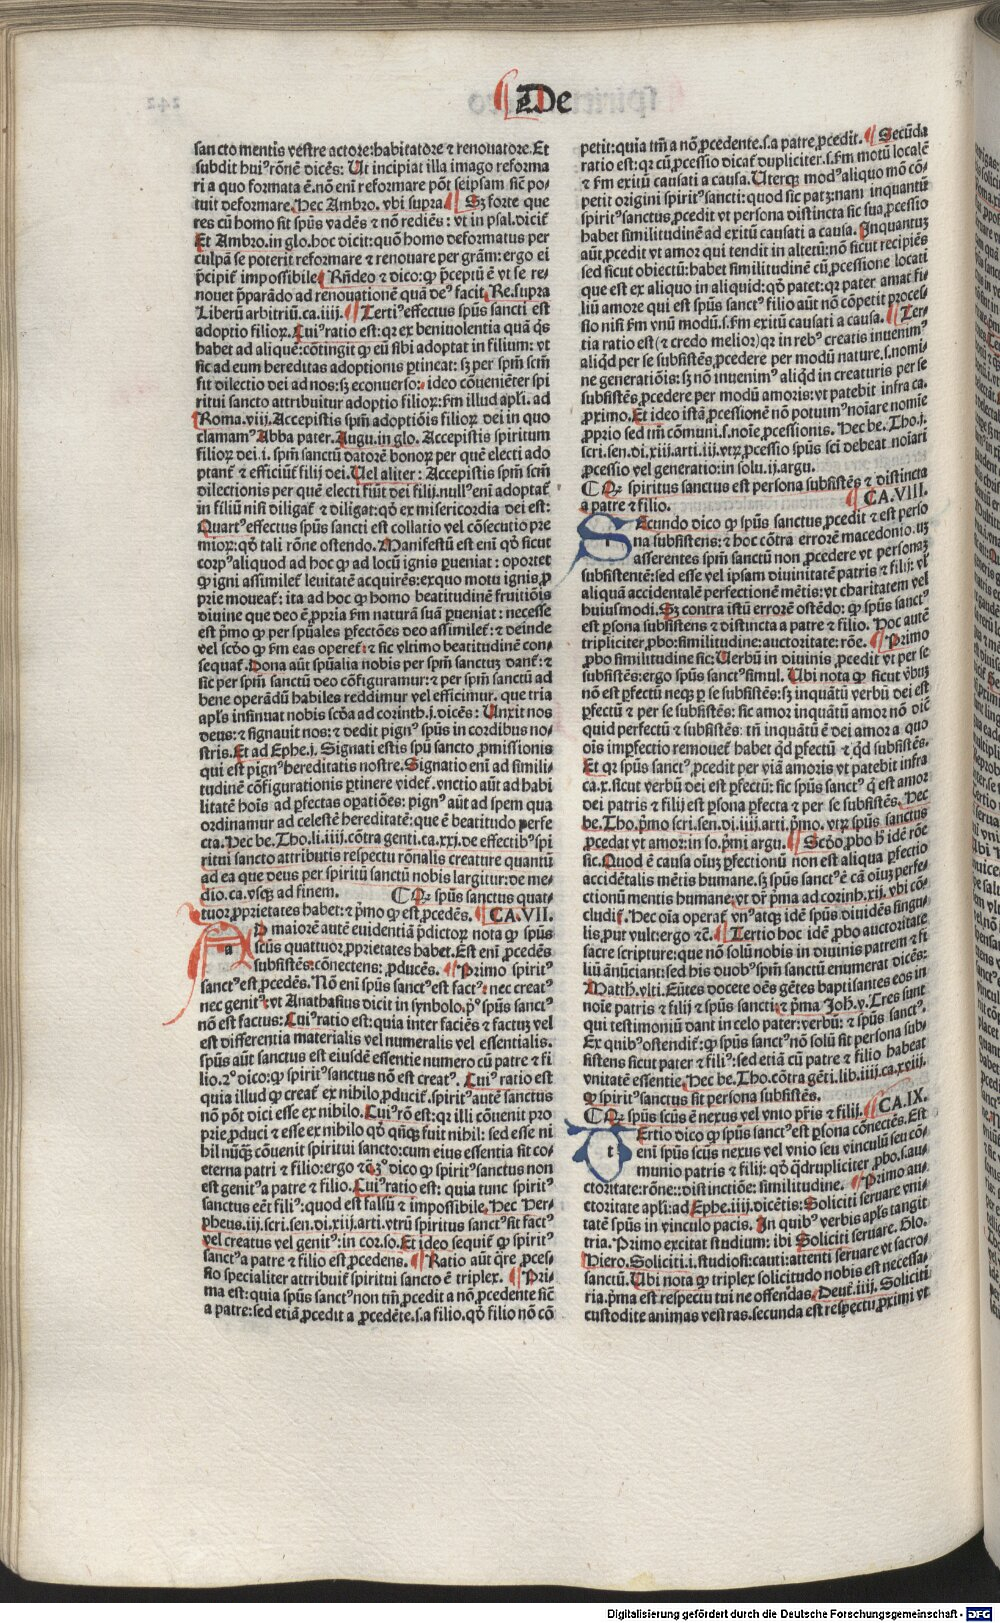 De
sancto mentis vestre actore: habitatore ⁊ renouatore. Et
subdit huiꝰ rōnē dicēs: Ut incipiat illa imago reforma
ri a quo formata ē. nō eni reformare pōt seipsam sic̄ po-
tuit deformare. Hec Ambro. vbi supra ¶ Sꝫ forte que
res cū homo sit spūs vadēs ⁊ nō rediēs: vt in psal. dicit̄
Et Ambro. in glo. hoc dicit: quō homo deformatus per
culpā se poterit reformare ⁊ renouare per grām: ergo ei
p̄cipit̄ impossibile ¶ Rn̄deo ⁊ dico: ꝙ p̄ceptū ē vt se re-
nouet p̄parādo ad renouationē quā deꝰ facit. Re. supra
Liberū arbitriū. ca. iiij. ¶ Tertiꝰ effectus spūs sancti est
adoptio filioꝝ. Cuiꝰ ratio est: qꝛ ex beniuolentia quā q̄s
habet ad aliquē: cōtingit ꝙ eū sibi adoptat in filium: vt
sic ad eum hereditas adoptionis ptineat: sꝫ per spm̄ scm̄
fit dilectio dei ad nos: sꝫ econuerso: ideo cōueniēter spi
ritui sancto attribuitur adoptio filioꝝ: fm illud apli. ad
Roma. viij. Accepistis spm̄ adoptiōis filioꝝ dei in quo
clamamꝰ Abba pater. Augu. in glo. Accepistis spiritum
filioꝝ dei. i. spm̄ sanctū datorē bonoꝝ per quē electi ado
ptant̄ ⁊ efficiūt̄ filij dei. Uel aliter: Accepistis spm̄ scm̄
dilectionis per quē electi fiūt dei filij. nullꝰ eni adoptat̄
in filiū nisi diligat̄ ⁊ diligat: qd̄ ex misericordia dei est:
Quartꝰ effectus spūs sancti est collatio vel cōsecutio pre
mioꝝ: qd̄ tali rōne ostendo. Manifestū est eni qd̄ sicut
corpꝰ aliquod ad hoc ꝙ ad locū ignis ꝑueniat: oportet
ꝙ igni assimilet̄ leuitatē acquirēs: ex quo motu ignis ꝓ
prie moueat̄: ita ad hoc ꝙ homo beatitudinē fruitiōis
diuine que deo ē ꝓpria fm naturā suā ꝑueniat: necesse
est p̄mo ꝙ per spūales ꝑfectōes deo assimilet̄: ⁊ deinde
vel scd̄o ꝙ fm eas operet̄: ⁊ sic vltimo beatitudinē con-
sequat̄. Dona aūt spūalia nobis per spm̄ sanctuꝫ dant̄: ⁊
sic per spm̄ sanctū deo cōfiguramur: ⁊ per spm̄ sanctū ad
bene operādū habiles reddimur vel efficimur. que tria
apls̄ insinuat nobis scd̄a ad corinth. j. dicēs: Unxit nos
deus: ⁊ signauit nos: ⁊ dedit pignꝰ spūs in cordibus no-
stris. Et ad Ephe. j. Signati estis spū sancto ꝓmissionis
qui est pignꝰ hereditatis nostre. Signatio eni ad simili-
tudinē cōfigurationis ꝑtinere videt̄. vnctio aūt ad habi
litatē hoīs ad ꝑfectas oꝑatiōes: pignꝰ aūt ad spem qua
ordinamur ad celestē hereditatē: que ē beatitudo perfe
cta. Hec be. Tho. li. iiij. cōtra genti. ca. xxj. de effectibꝰ spi
ritui sancto attributis respectu rōnalis creature quantū
ad ea que deus per spiritū sanctū nobis largitur: de me-
dio. ca. vsqꝫ ad finem. ¶ Qꝙ spūs sanctus quat-
tuor ꝓprietates habet: ⁊ p̄mo ꝙ est ꝓcedēs. ¶ CA. VII.
AD maiorē autē euidentiā p̄dictoꝝ nota ꝙ spūs
scūs quattuor ꝓprietates habet. Est eni ꝓcedēs
subsistēs: cōnectens: ꝓducēs. ¶ Primo spiritꝰ
sanctꝰ est ꝓcedēs. Nō eni spūs sanctꝰ est factꝰ: nec creatꝰ
nec genitꝰ: vt Anathasius dicit in synbolo. p̄ꝰ spūs sanctꝰ
nō est factus: Cuiꝰ ratio est: quia inter faciēs ⁊ factuꝫ vel
est differentia materialis vel numeralis vel essentialis.
spūs aūt sanctus est eiusdē essentie numero cū patre ⁊ fi
lio. 2ꝰ dico: ꝙ spiritꝰ sanctus nō est creatꝰ. Cuiꝰ ratio est
quia illud ꝙ creat̄ ex nihilo ꝓducit̄. spiritꝰ autē sanctus
nō pōt dici esse ex nihilo. Cuiꝰ rō est: qꝛ illi cōuenit pro
prie ꝓduci ⁊ esse ex nihilo qd̄ qn̄qꝫ fuit nihil: sed esse ni
hil nūqꝫ cōuenit spiritui sancto: cum eius essentia sit co-
eterna patri ⁊ filio: ergo ⁊c̄. 3ꝰ dico ꝙ spiritꝰ sanctus non
est genitꝰ a patre ⁊ filio. Cuiꝰ ratio est: quia tunc spiritꝰ
sanctus eēt filiꝰ: quod est falsū ⁊ impossibile. Hec Her-
pheus. iij. scri. sen. di. xiij. arti. vtrū spiritus sanctꝰ sit factꝰ
vel creatus vel genitꝰ: in cor. so. Et ideo sequit̄ ꝙ spiritꝰ
sanctꝰ a patre ⁊ filio est ꝓcedens. ¶ Ratio aūt q̄re ꝓces-
sio specialiter attribuit̄ spiritui sancto ē triplex. ¶ Pri-
ma est: quia spūs sanctꝰ non tm̄ ꝓcedit a nō ꝓcedente sic̄
a patre: sed etiā ꝓcedit a ꝓcedēte. s. a filio. qd̄ filio nō cō
petit: quia tm̄ a nō ꝓcedente. s. a patre ꝓcedit. ¶ Secūda
ratio est: qꝛ cū ꝓcessio dicat̄ dupliciter. s. fm motū localē
⁊ fm exitū causati a causa. Uterqꝫ modꝰ aliquo mō cō-
petit origini spiritꝰ sancti: quod sic patꝫ: nam inquantū
spiritꝰ sanctus ꝓcedit vt persona distincta sic sua ꝓcessio
habet similitudinē ad exitū causati a causa. Inquantuꝫ
aūt ꝓcedit vt amor qui tendit in alterū: nō sicut recipiēs
sed sicut obiectū: habet similitudinē cū ꝓcessione locati
que est ex aliquo in aliquid: qd̄ patet: qꝛ pater amat fi-
liū amore qui est spūs sanctꝰ filio aūt nō cōpetit ꝓces-
sio nisi fm vnū modū. s. fm exitū causati a causa. ¶ Ter-
tia ratio est (⁊ credo melior) qꝛ in rebꝰ creatis inuenimꝰ
aliq̄d per se subsistēs ꝓcedere per modū nature. s. nomi-
ne generatiōis: sꝫ nō inuenimꝰ aliq̄d in creaturis per se
subsistēs ꝓcedere per modū amoris: vt patebit infra ca.
ꝓximo. Et ideo istā ꝓcessionē nō potuimꝰ noīare nomine
ꝓprio sed tm̄ cōmuni. s. noīe ꝓcessionis. Hec be. Tho. j.
scri. sen. di. xiij. arti. iij. vtrꝫ ꝓcessio spūs sci debeat noīari
ꝓcessio vel generatio: in solu. ij. argu.
¶ Qꝙ spiritus sanctus est persona subsistēs ⁊ distincta
a patre ⁊ filio. ¶ CA. VIII.
SEcundo dico ꝙ spūs sanctus ꝓcedit ⁊ est perso
na subsistens: ⁊ hoc cōtra errorē macedonio. uꝫ
asserentes spm̄ sanctū non ꝓcedere vt personaꝫ
subsistentē: sed esse vel ipsam diuinitatē patris ⁊ filij: vl̄
aliquā accidentalē perfectionē mētis: vt charitatem vel
huiusmodi. Sꝫ contra istū errorē ostēdo: ꝙ spūs sanctꝰ
est psona subsistens ⁊ distincta a patre ⁊ filio. Hoc autē
tripliciter ꝓbo: similitudine: auctoritate: rōe. ¶ Primo
ꝓbo similitudine sic: Uerbū in diuinis ꝓcedit vt per se
subsistēs: ergo spūs sanctꝰ simul. Ubi nota ꝙ sicut v̄buꝫ
nō est ꝑfectū neqꝫ ꝑ se subsistēs: sꝫ inquātū verbū dei est
ꝑfectū ⁊ per se subsistēs: sic amor inquātū amor nō dic̄
quid perfectū ⁊ subsistēs: tn̄ inquātū ē dei amor a quo
oīs imꝑfectio remouet̄ habet qd̄ ꝑfectū ⁊ qd̄ subsistēs.
Et qꝛ spūs sanctꝰ ꝓcedit per viā amoris vt patebit infra
ca. x. sicut verbū dei est ꝑfectū: sic spūs sanctꝰ q̄ est amor
dei patris ⁊ filij est ꝑsona ꝑfecta ⁊ per se subsistēs. Hec
be. Tho. p̄mo scri. sen. di. iiij. arti. p̄mo. vtrꝫ spūs sanctus
ꝓcedat vt amor: in so. p̄mi argu. ¶ Scd̄o ꝓbo h̄ idē rōe
sic. Quod ē causa oīuꝫ ꝑfectionū non est aliqua ꝑfectio
accidētalis mētis humane. sꝫ spūs sanctꝰ ē cā oīuꝫ ꝑfe-
ctionū mentis humane: vt dr̄ p̄ma ad corinh. xij. vbi cō-
cludit̄. Hec oīa operat̄ vnꝰ atqꝫ idē spūs diuidēs singu-
lis put vult: ergo ⁊c̄. ¶ Tertio hoc idē ꝓbo auctoritate
sacre scripture: que nō solū nobis in diuinis patrem ⁊ fi
liū ānūciant: sed his duobꝰ spm̄ sanctū enumerat dicēs:
Matth. vlti. Eūtes docete oēs gētes baptisantes eos in
noīe patris ⁊ filij ⁊ spūs sancti: ⁊ p̄ma Joh. v. Tres sunt
qui testimoniū dant in celo pater: verbū: ⁊ spūs sanctꝰ.
Ex quibꝰ ostendit̄: ꝙ spūs sanctꝰ nō solū sit persona sub-
sistens sicut pater ⁊ filiꝰ: sed etiā cū patre ⁊ filio habeat
vnitatē essentie. Hec be. Tho. cōtra gēti. lib. iiij. ca. xviij.
ꝙ spiritꝰ sanctus sit persona subsistēs.
¶ Qꝙ spūs scūs ē nexus vel vnio pr̄is ⁊ filij. ¶ CA. IX.
TErtio dico ꝙ spūs sanctꝰ est ꝑsona cōnectēs. Est
eni spūs scūs nexus vel vnio seu vinculū seu cō-
munio patris ⁊ filij: qd̄ q̄drupliciter ꝓbo. s. au-
ctoritate: rōne: distinctiōe: similitudine. ¶ Primo au-
ctoritate apli: ad Ephe. iiij. dicētis: Soliciti seruare vni-
tatē spūs in vinculo pacis. In quibꝰ verbis apls̄ tangit
tria. Primo excitat studium: ibi Soliciti seruare. Glo.
Hiero. Soliciti. i. studiosi: cauti: attenti seruare vt sacro-
sanctū. Ubi nota ꝙ triplex solicitudo nobis est necessa-
ria. p̄ma est respectu tui ne offendas. Deut̄. iiij. Soliciti
custodite animas vestras. secunda est respectu ꝓximi vt
Digitalisierung gefördert durch die Deutsche Forschungsgemeinschaft - DFG